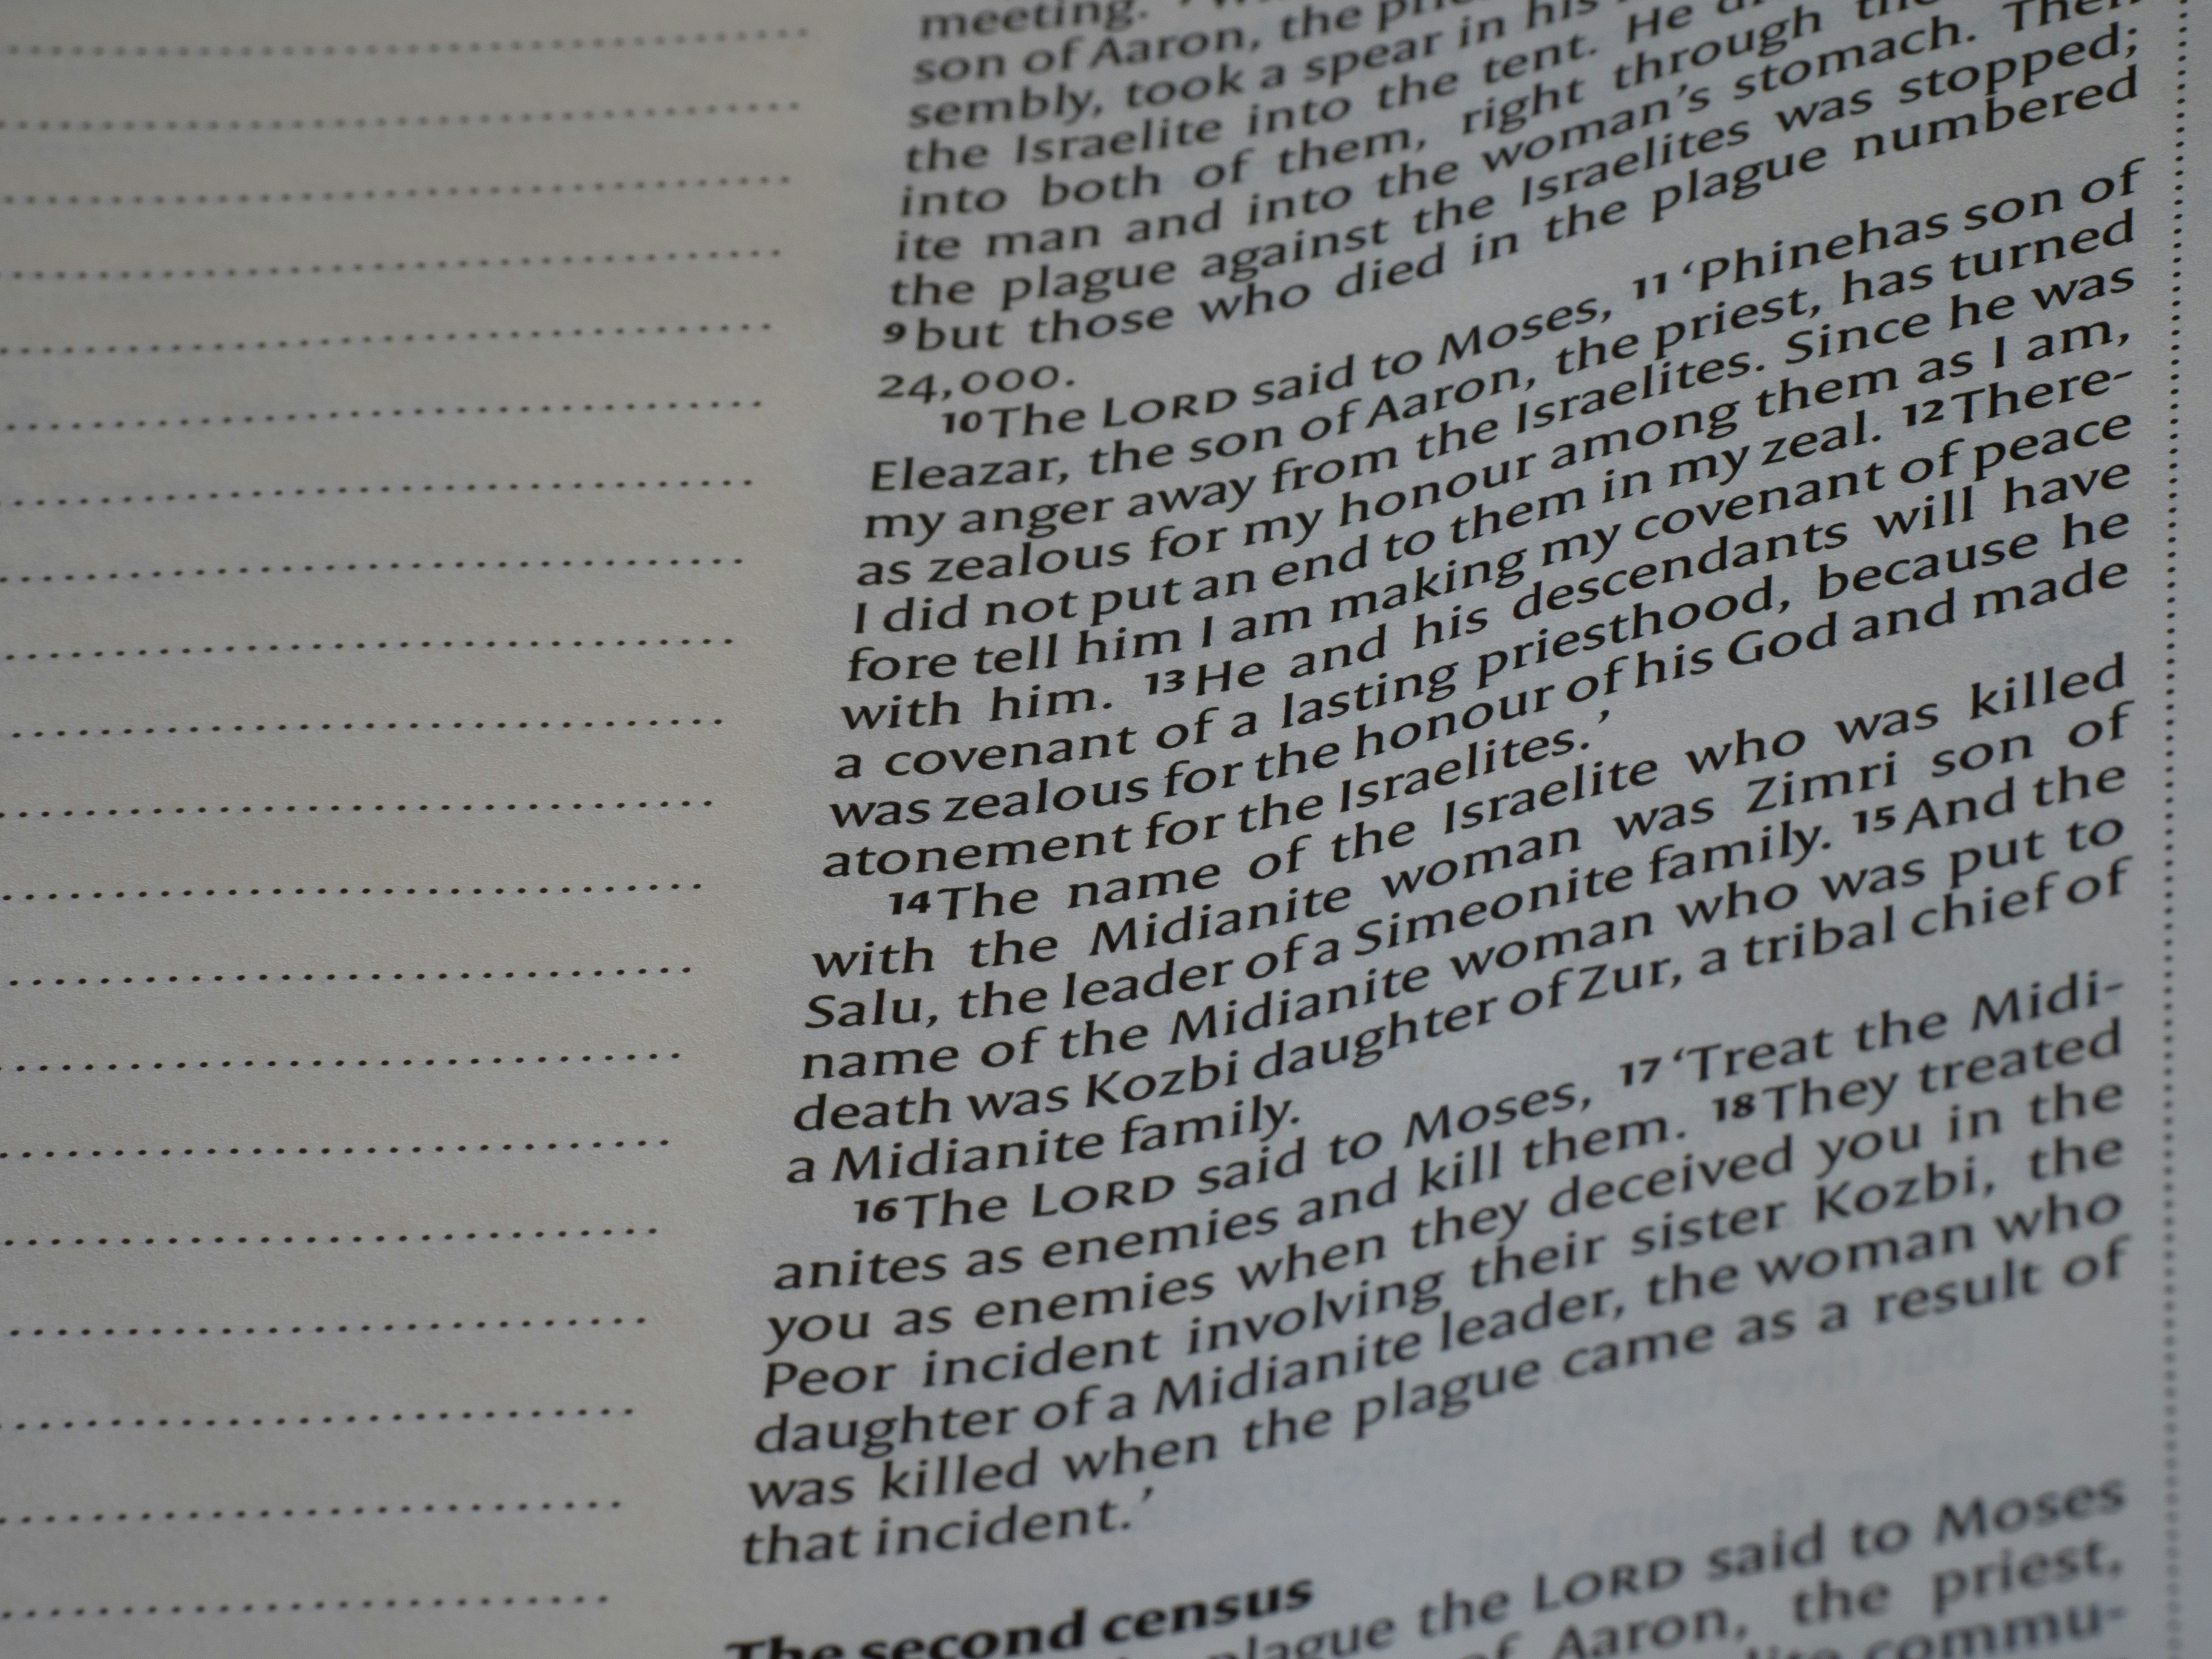 meeting.
son of Aaron, the
sembly, took a spear in his
the Israelite into the tent. He
into both of them, right through
ite man and into the woman's stomach. Then
the plague against the Israelites was stopped;
9 but those who died in the plague numbered
24,000.
10 The LORD said to Moses, 11 ‘Phinehas son of
Eleazar, the son of Aaron, the priest, has turned
my anger away from the Israelites. Since he was
as zealous for my honour among them as I am,
I did not put an end to them in my zeal. 12 There-
fore tell him I am making my covenant of peace
with him. 13 He and his descendants will have
a covenant of a lasting priesthood, because he
was zealous for the honour of his God and made
atonement for the Israelites.’
14 The name of the Israelite who was killed
with the Midianite woman was Zimri son of
Salu, the leader of a Simeonite family. 15 And the
name of the Midianite woman who was put to
death was Kozbi daughter of Zur, a tribal chief of
a Midianite family.
16 The LORD said to Moses, 17 ‘Treat the Midi-
anites as enemies and kill them. 18 They treated
you as enemies when they deceived you in the
Peor incident involving their sister Kozbi, the
daughter of a Midianite leader, the woman who
was killed when the plague came as a result of
that incident.’
The second census
plague the LORD said to Moses
of Aaron, the priest,
commu-